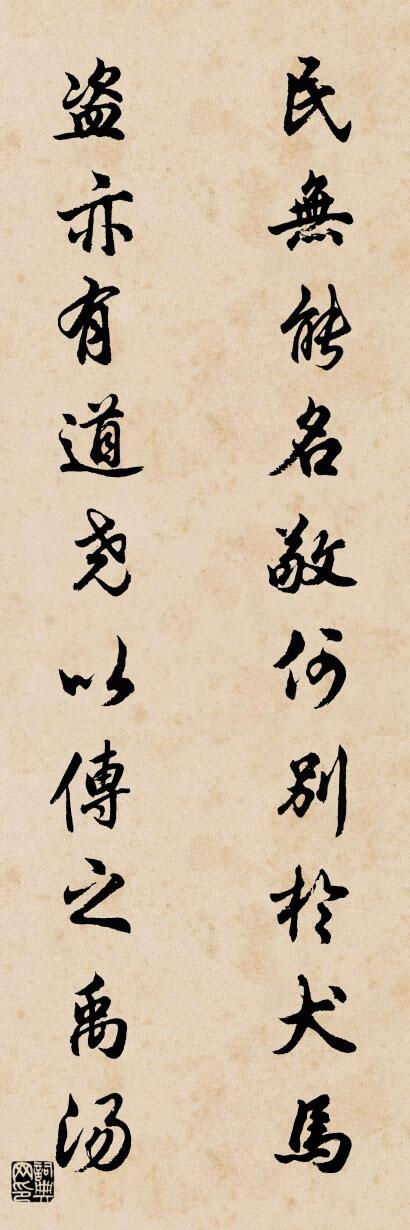 民無能名敬何別於犬馬
盗亦有道尧以傳之禹湯
詞典网印